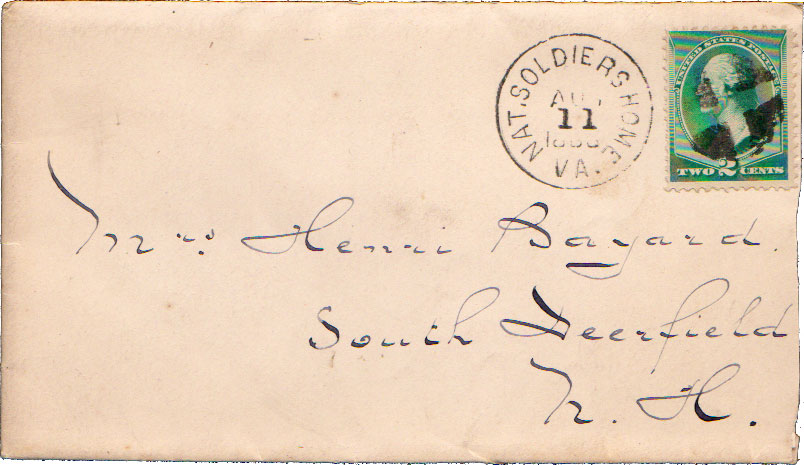 NAT. SOLDIERS HOME
11
VA.
UNITED STATES POSTAGE
TWO 2 CENTS
Mrs. Henri Bayard.
South Deerfield
N. H.